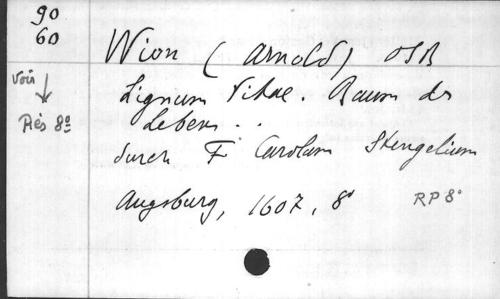 90
60
Wion (Arnold) OSB
voir
Lignum Vitae. Baum des
Lebens ..
Rés 8º
durch F Carolum Stengelium
Augsburg, 1607, 8º
RP 8º